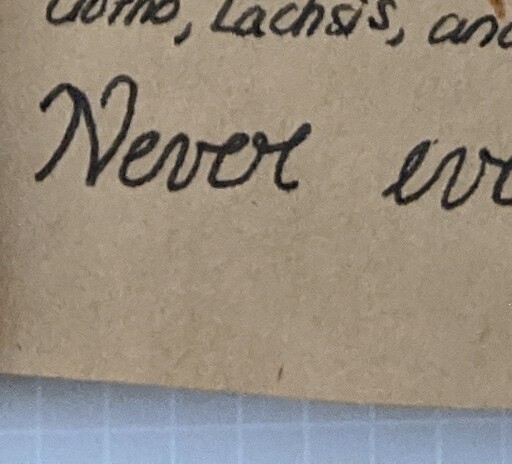 Clotho, Lachsis, and
Never eve